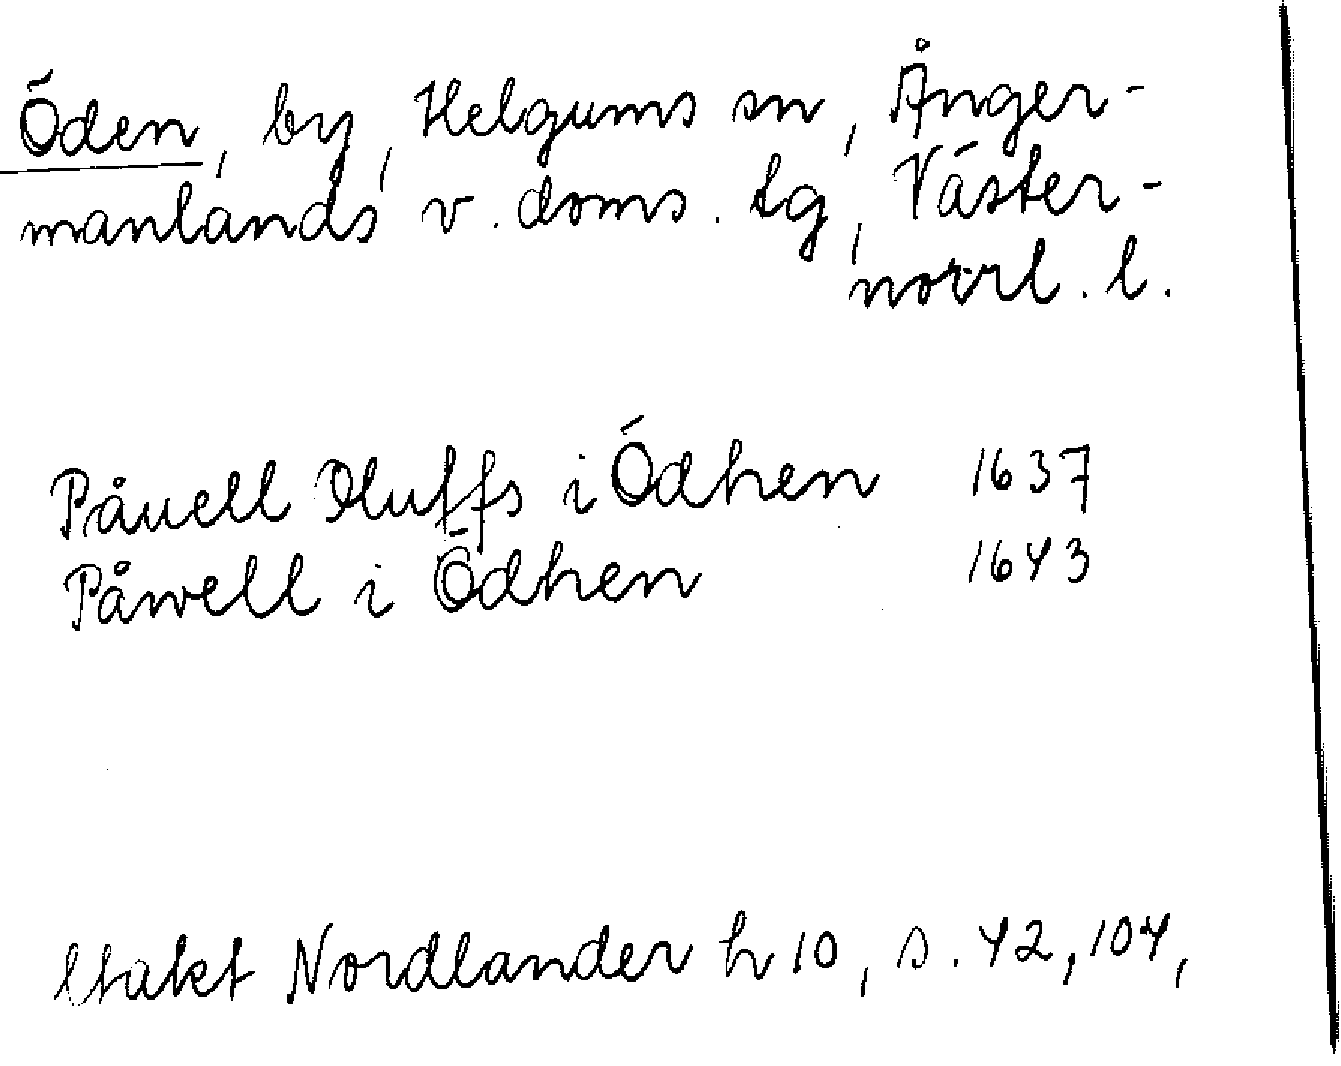 Öden, by, Helgums sn, Ånger-
manlands v. doms. tg, Väster-
norrl. l.
Påuell Oluffs i Ödhen 1637
Påwell i Ödhen 1643
Utakt Nordlander h 10, s. 42, 104,